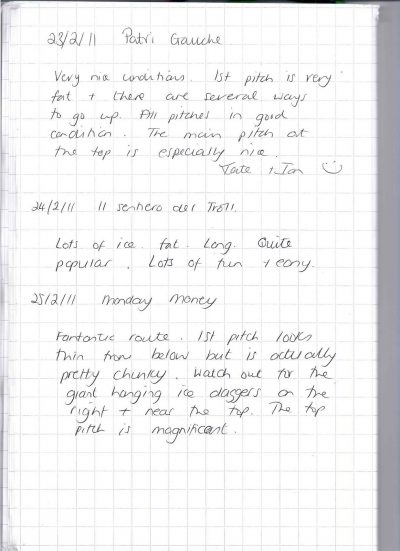 23/2/11 Patri Gauche
Very nice conditions. 1st pitch is very
fat + there are several ways
to go up. All pitches in good
condition. The main pitch at
the top is especially nice.
Tate + Jon
24/2/11 Il senhero dei Troll.
Lots of ice. fat. Long. Quite
popular. Lots of fun + easy.
25/2/11 Monday Money
Fantastic route. 1st pitch looks
thin from below but is actually
pretty chunky. Watch out for the
giant hanging ice daggers on the
right + near the top. The top
pitch is magnificant.